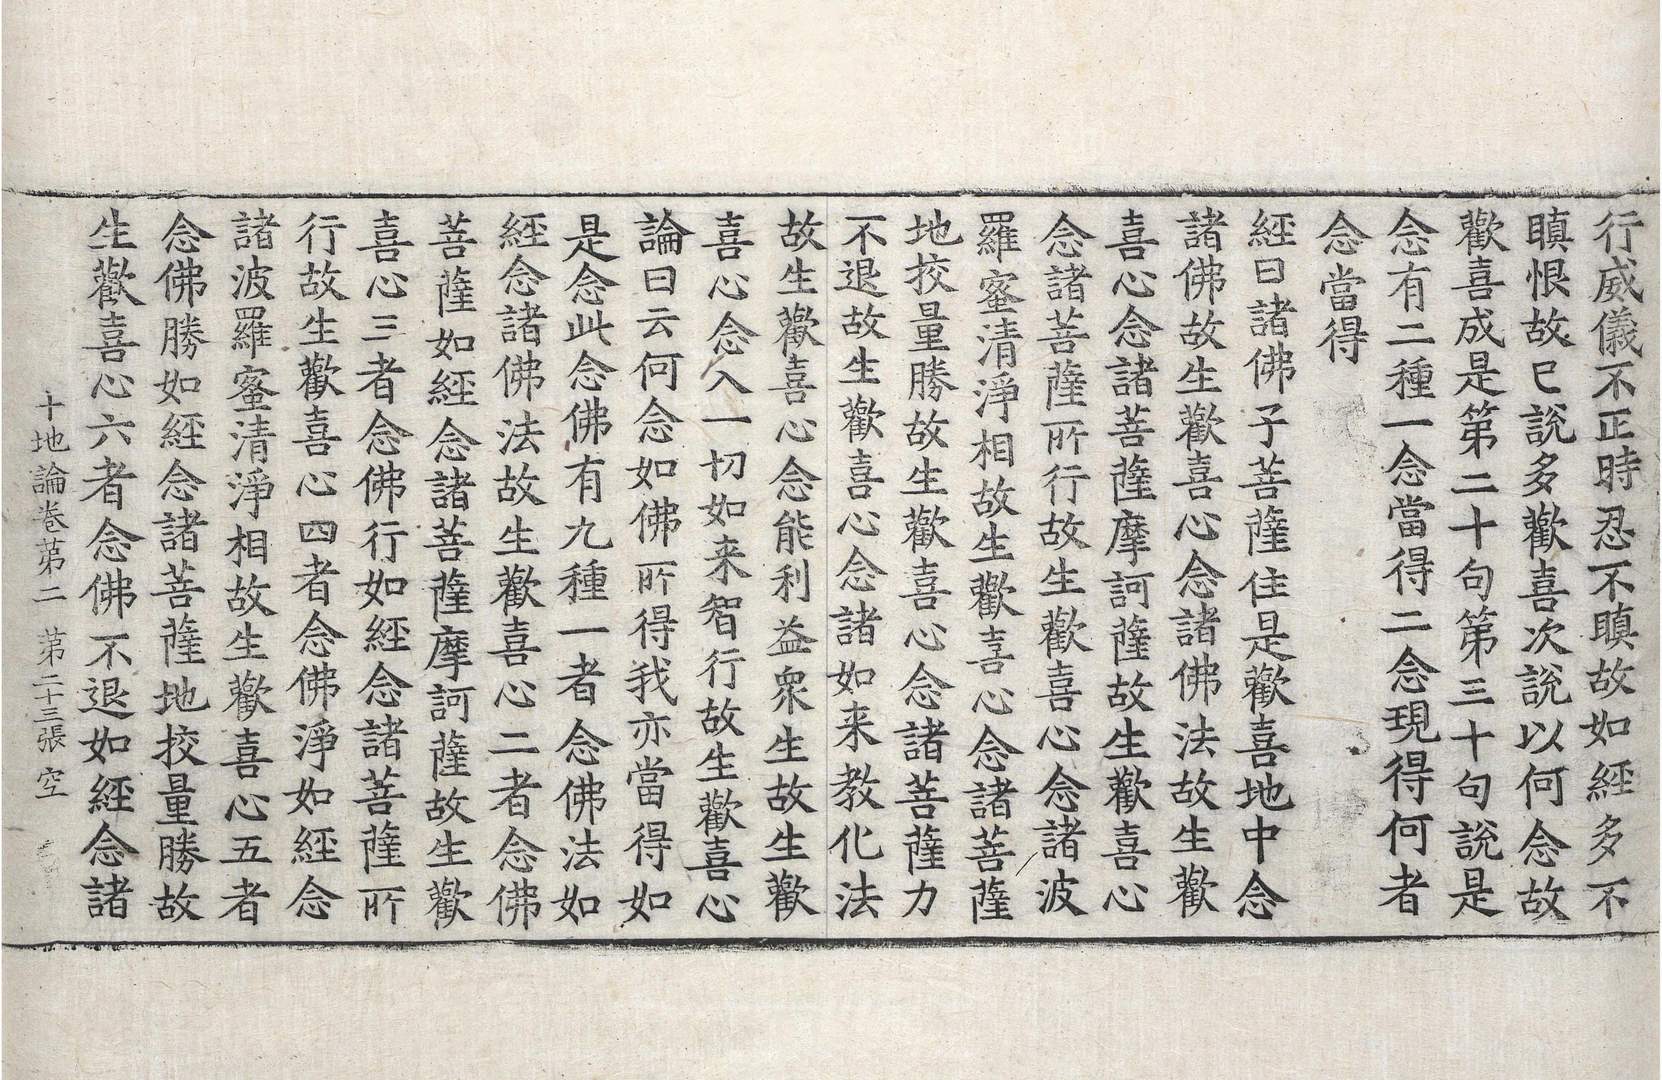 行威儀不正時忍不瞋故如經多不
瞋恨故已說多歡喜次說以何念故
歡喜成是第二十句第三十句說是
念有二種一念當得二念現得何者
念當得
經曰諸佛子菩薩住是歡喜地中念
諸佛故生歡喜心念諸佛法故生歡
喜心念諸菩薩摩訶薩故生歡喜心
念諸菩薩所行故生歡喜心念諸波
羅蜜清淨相故生歡喜心念諸菩薩
地挍量勝故生歡喜心念諸菩薩力
不退故生歡喜心念諸如来教化法
故生歡喜心念能利益衆生故生歡
喜心念入一切如来智行故生歡喜心
論曰云何念如佛所得我亦當得如
是念此念佛有九種一者念佛法如
經念諸佛法故生歡喜心二者念佛
菩薩如經念諸菩薩摩訶薩故生歡
喜心三者念佛行如經念諸菩薩所
行故生歡喜心四者念佛淨如經念
諸波羅蜜清淨相故生歡喜心五者
念佛勝如經念諸菩薩地挍量勝故
生歡喜心六者念佛不退如經念諸
十地論卷苐二 第二十三張 空